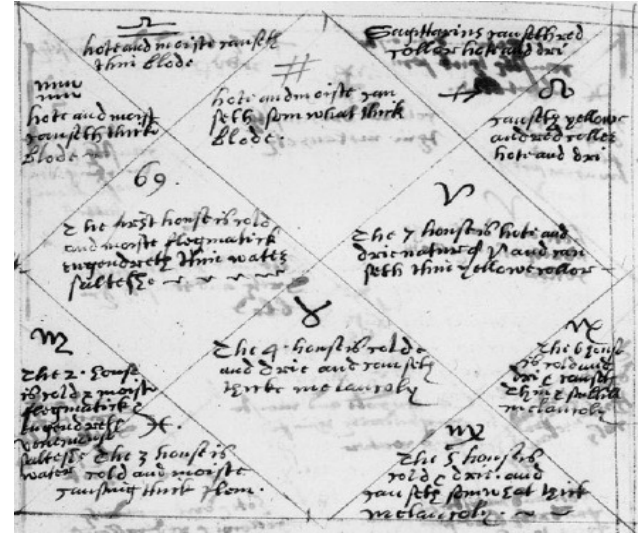 ♎
hote and moiste causeth
thin blode
Sagittarius causeth red
coller hote and dri
♒
hote and moist
causeth thick
blode
♊
hote and moiste cau
seth somwhat thick
blode
♐ ♌
causeth yellowe
and red coller
hote and dri
♋
The first house is cold
and moiste flegmatick
engendreth thin water
saltesse
♈
The 7 house is hote and
drie nature of ♈ and cau
seth thin yellowe collor
♏
The 2. house
is cold & moiste
flegmatick &
engendreth
venemouse
saltesse
water
♓
The 3 house is
cold and moiste
causing thick flem.
♉
The 4. house is cold
and drie and causeth
thicke melancoly
♑
The 6 house
is cold and
dri & causeth
thin & subtill
melancoly
♍
The 5 house is
cold & drie. and
causeth somwhat thick
melancoly.